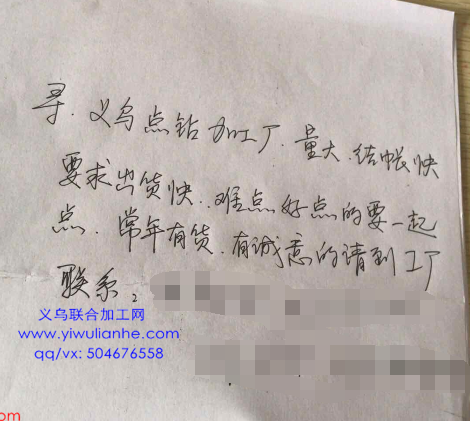 寻.义乌点钻加工厂.量大.结帐快
要求出货快.难点好点的要一起
点.常年有货.有诚意的请到工厂
联系:
义乌联合加工网
www.yiwulianhe.com
qq/vx: 504676558
om